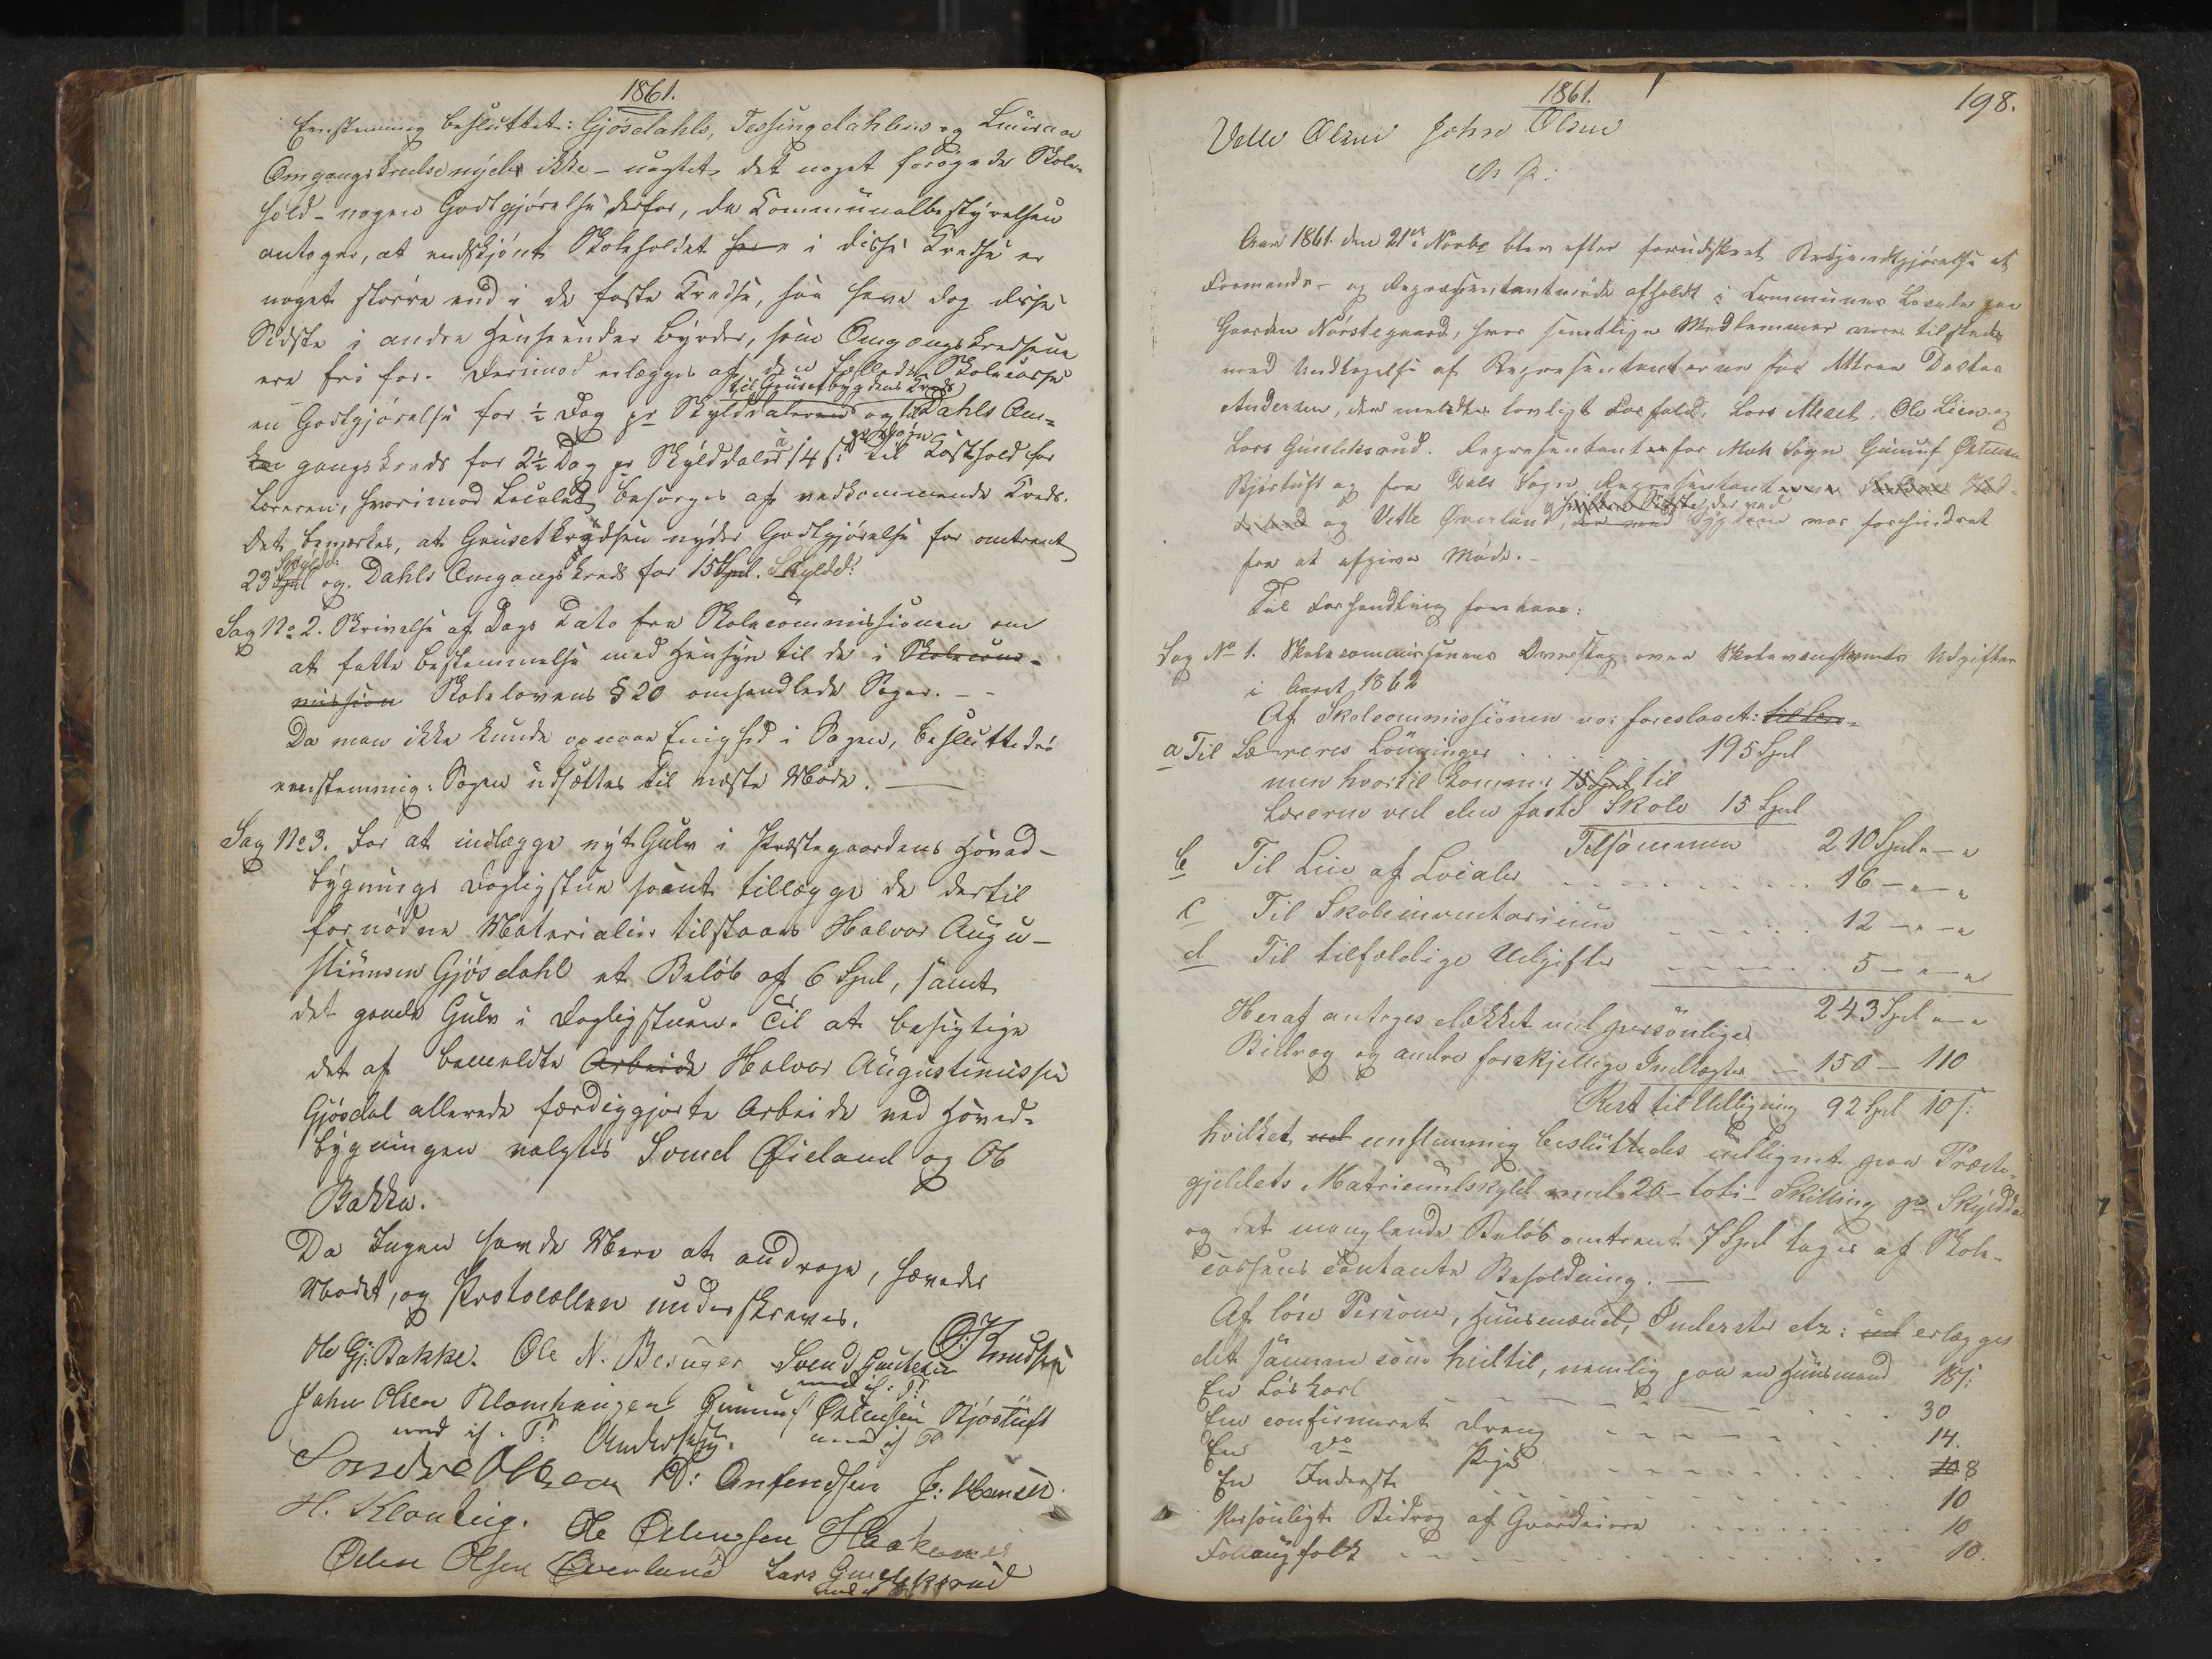 1861.
Eenstemmig besluttet: Gjøsdahls, Tessingdahlens og
Omgangskredse nyde ikke – uagtet det noget forøgede Skole-
hold – nogen Godtgjørelse derfor, da Kommunalbestyrelsen
antager, at endskjønt Skoleholdet i disse Kredse er
noget større end i de faste Kredse, saa have dog disse
Sidste i andre Henseender Byrder, som Omgangskredsene
ere fri for. Derimod erlægges af den fælleds Skolecasse
til Grusetbygdens Kreds
en Godtgjørelse for ½ Dag pr Skylddaleren og til Dahls Om-
gangskreds for 2½ Dag pr Skylddaler à 14 s: pr Døgn til Kosthold for
Læreren, hvorimod Localet besørges af vedkommende Kreds.
Det bemærkes, at Grusetkredsen nyder Godtgjørelse for omtrent
23 Skyldd: og Dahls Omgangskreds for 15 Skyldd:
Sag No 2. Skrivelse af Dags Dato fra Skolecommissionen om
at fatte Bestemmelse med Hensyn til de i Skolecom-
mission Skolelovens § 20 omhandlede Sager. – –
Da man ikke kunde opnaae Enighed i Sagen, besluttedes
eenstemmig: Sagen udsættes til næste Møde. —
Sag No 3. For at indlægge nyt Gulv i Præstegaardens Hoved-
bygnings Dagligstue samt tillægge de dertil
fornødne Materialier tilstaaes Halvor Augu-
stinusen Gjøsdahl et Beløb af 6 Spd, samt
det gamle Gulv i Dagligstuen. Til at besigtige
det af bemeldte Arbeide Halvor Augustinussen
Gjøsdal allerede færdiggjorte Arbeide ved Hoved-
bygningen valgtes Svend Øieland og Ole
Bakka.
Da Ingen havde Mere at andrage, hævedes
Mødet, og Protocollen underskreves.
O. Knudsen
Ole Gj: Bakke. Ole N. Svend Gautesen
med i P:
John Olsen Gunnuf Østensen Kjøstuft
med i P: Andersen. med i P
Sondre Olsen D: Anfendsen J: Hansen.
H. Klonteig. Ole Østensen Haakanes
Østen Olsen Øverland Lars Gunleksrud
198.
1861.
Vetle Olsen John Olsen
m P:
Aar 1861 den 21de Novbr blev efter forudskeet Bekjendtgjørelse et
Formands- og Repræsentantmøde afholdt i Communens Locale paa
Gaarden Nørstegaard, hvor samtlige Medlemmer vare tilstede
med Undtagelse af Repræsentanterne for Attraa
Andersen, der meldte lovligt Forfald, Lars Meset, Ole Lien og
Lars Gunleksrud. Repræsentant for Mæl Sogn Gunnuf Østensen
Kjøstuft og fra Dals Sogn Repræsentant
og Vetle Øverland, hvilken Sidste, der ved Sygdom var forhindret
fra at afgive Møde. –
Til Forhandling foretoges:
Sag No 1. Skolecommissionens Overslag over Skolevæsenets Udgifter
i Aaret 1862
Af Skolecommissionen var foreslaaet: til Lære-
a Til Læreres Lønninger . . . . 195 Spd
men hvortil kommer 15 Spd til
Læreren ved den faste Skole 15 Spd
Tilsammen 210 Spd " – "
b Til Leie af Locale . . . . 16 – " – "
c Til Skoleinventarium . . . . 12 – " – "
d Til tilfældige Udgifter . . . . 5 – " – "
243 Spd " – "
Heraf antages dækket ved personlige
Bidrag og andre forskjellige Indtægter – 150 – 110
Rest til Udligning 92 Spd 10 s:
hvilket ud eenstemmig besluttedes udlignet paa Præste-
gjeldets Matriculskyld med 20 – toti – Skilling pr Skyldda
og det manglende Beløb omtrent 7 Spd tages af Skole-
cassens contante Beholdning. —
Af løse Personer, Huusmænd, Inderster etc: ud erlægges
det samme som hidtil, nemlig paa en Huusmand 18 s:
En Løskarl . . . . 30
En confirmeret Dreng . . . . 14.
En do Pige . . . . 10 8
En Inderst . . . . 10
Personligt Bidrag af Gaardeiere . . . . 10
Folaugsfolk . . . . 10.